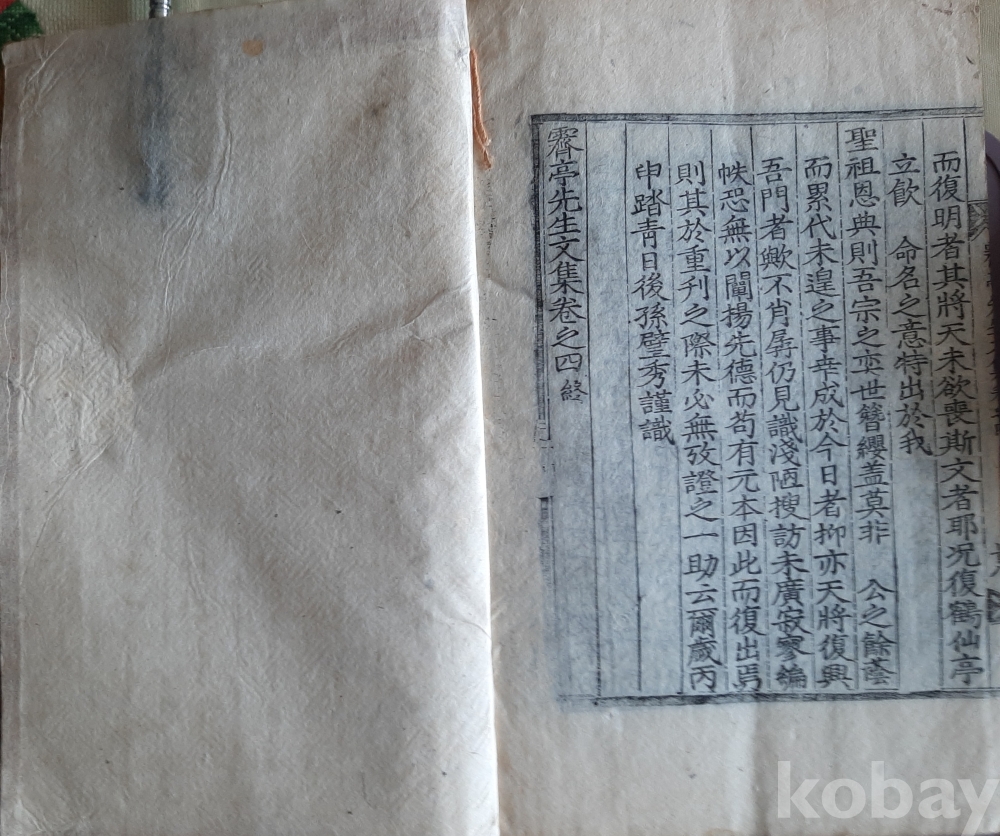 而復明者其將天未欲喪斯文者耶况復鶴仙亭
立歆 命名之意特出於我
聖祖恩典則吾宗之奕世簪纓盖莫非 公之餘蔭
而累代未遑之事幸成於今日者抑亦天將復興
吾門者歟不肖孱仍見識淺陋搜訪未廣寂寥編
帙恐無以闡揚先德而苟有元本因此而復出焉
則其於重刊之際未必無攷證之一助云爾歲丙
申踏靑日後孫璧秀謹識
霽亭先生文集卷之四 終
kobay